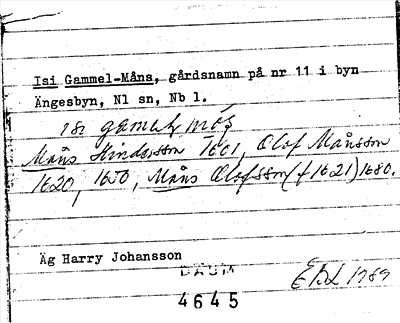 Isi Gammel-Måns, gårdsnamn på nr 11 i byn
Ängesbyn, Nl sn, Nb l.
isi gamelmås
Måns Hindersson 1601, Olof Månsson
1620, 1650, Måns Olofsson (f 1621) 1680.
Äg Harry Johansson
DAUM
4645
EBL 1989